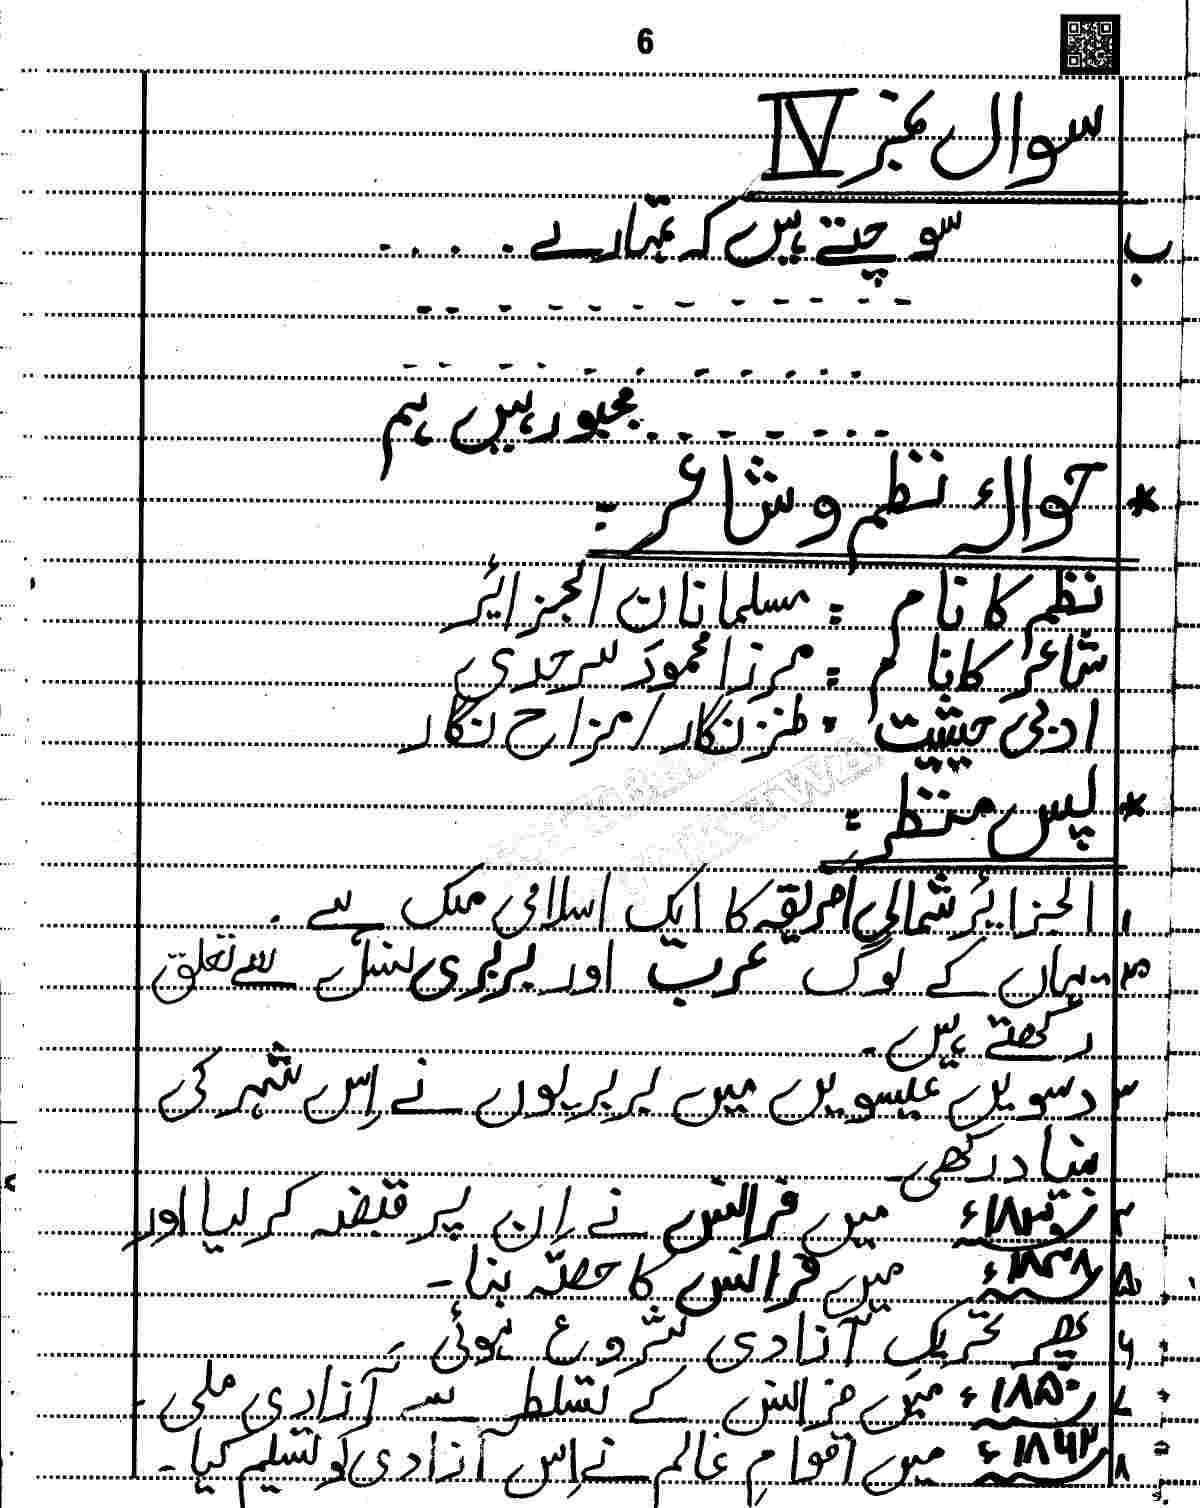 6
سوال نمبر IV
ب سوچتے ہیں کہ تمہارے . . . .
- - - - - - - - -
- - - - - - - - -
- - - - - - مجبور ہیں ہم
* حوالۂ نظم و شاعر :-
نظم کا نام : مسلمانان الجزائر
شاعر کا نام : مرزا محمود سرحدی
ادبی حیثیت : طنز نگار / مزاح نگار
* پس منظر :
۱ الجزائر شمالی افریقہ کا ایک اسلامی ملک ہے .
۲- یہاں کے لوگ عرب اور بربری نسل سے تعلق
رکھتے ہیں -
۳ دسویں عیسویں میں بربریوں نے اس شہر کی
بنیاد رکھی
۴ ۱۸۳۰ء میں فرانس نے اِن پر قبضہ کر لیا اور
۵ ۱۸۴۸ء میں فرانس کا حصّہ بنا -
۶ پھر تحریک آزادی شروع ہوئی -
۷ ۱۸۵۰ء میں فرانس کے تسلط سے آزادی ملی -
۸ ۱۸۶۲ء میں اقوامِ عالم نے اِس آزادی کو تسلیم کیا -